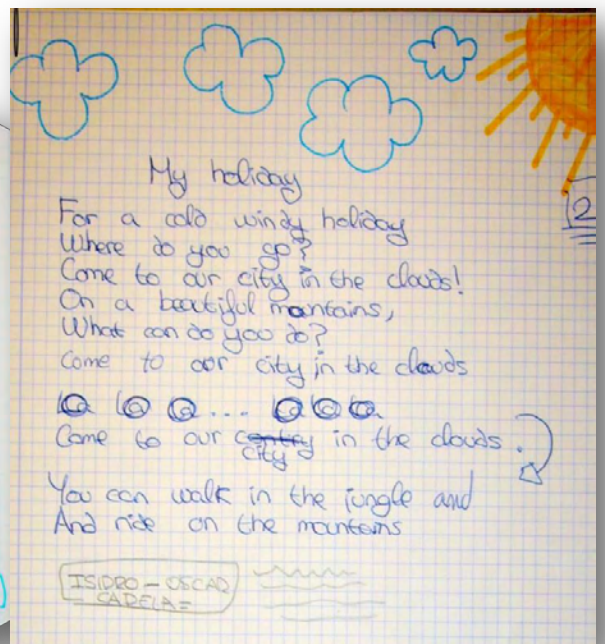 My holiday
2
For a cold windy holiday
Where do you go?
Come to our city in the clouds!
On a beautiful mountains,
What can do you do?
Come to our city in the clouds
la la a... la la la
Come to our city in the clouds.
You can walk in the jungle and
And ride on the mountains
ISIDRO - OSCAR
- CADELA=